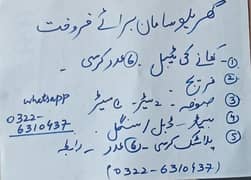 گھریلو سامان برائے فروخت
① کھانے کی ٹیبل . ⑥ عدد کرسی -
② فریج -
③ صوفہ - 2 سیٹر - سیٹر
④ بیڈ - ڈبل / سنگل .
⑤ پلاسٹک کرسی - ⑥ عدد - رابطہ
(0322-6310437)
whatsapp
0322-
6310437